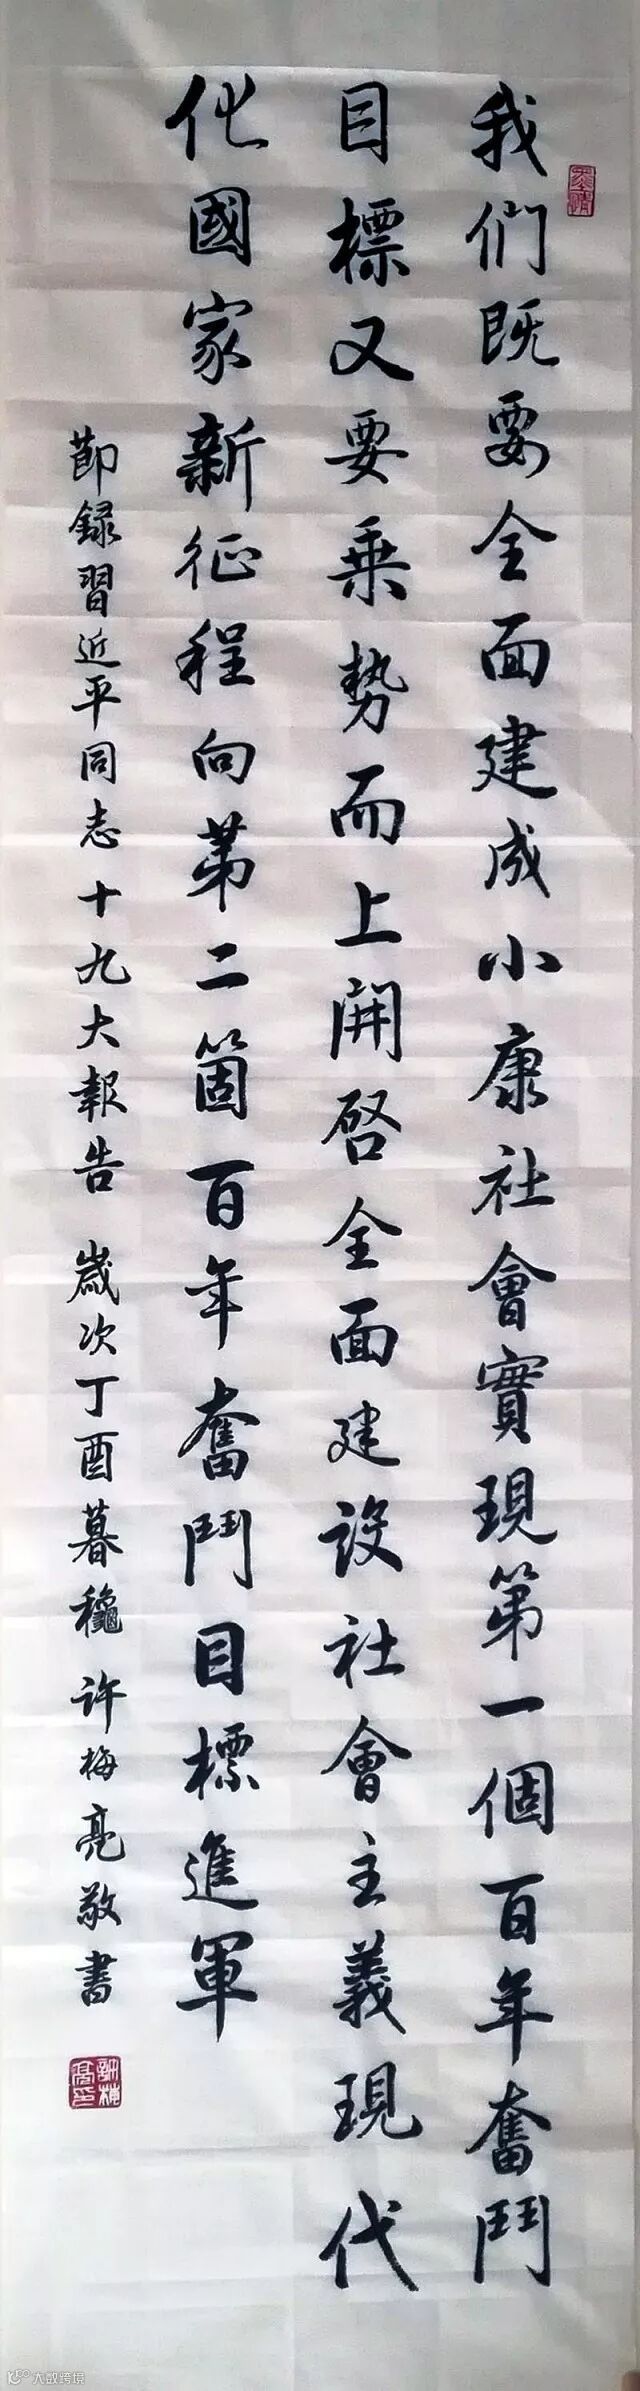 我們既要全面建成小康社會實現第一個百年奮鬥
目標又要乗勢而上開啓全面建設社會主義現代
化國家新征程向第二箇百年奮鬥目標進軍
節録習近平同志十九大報告 歲次丁酉暮龝 许梅亮敬書
大数跨境